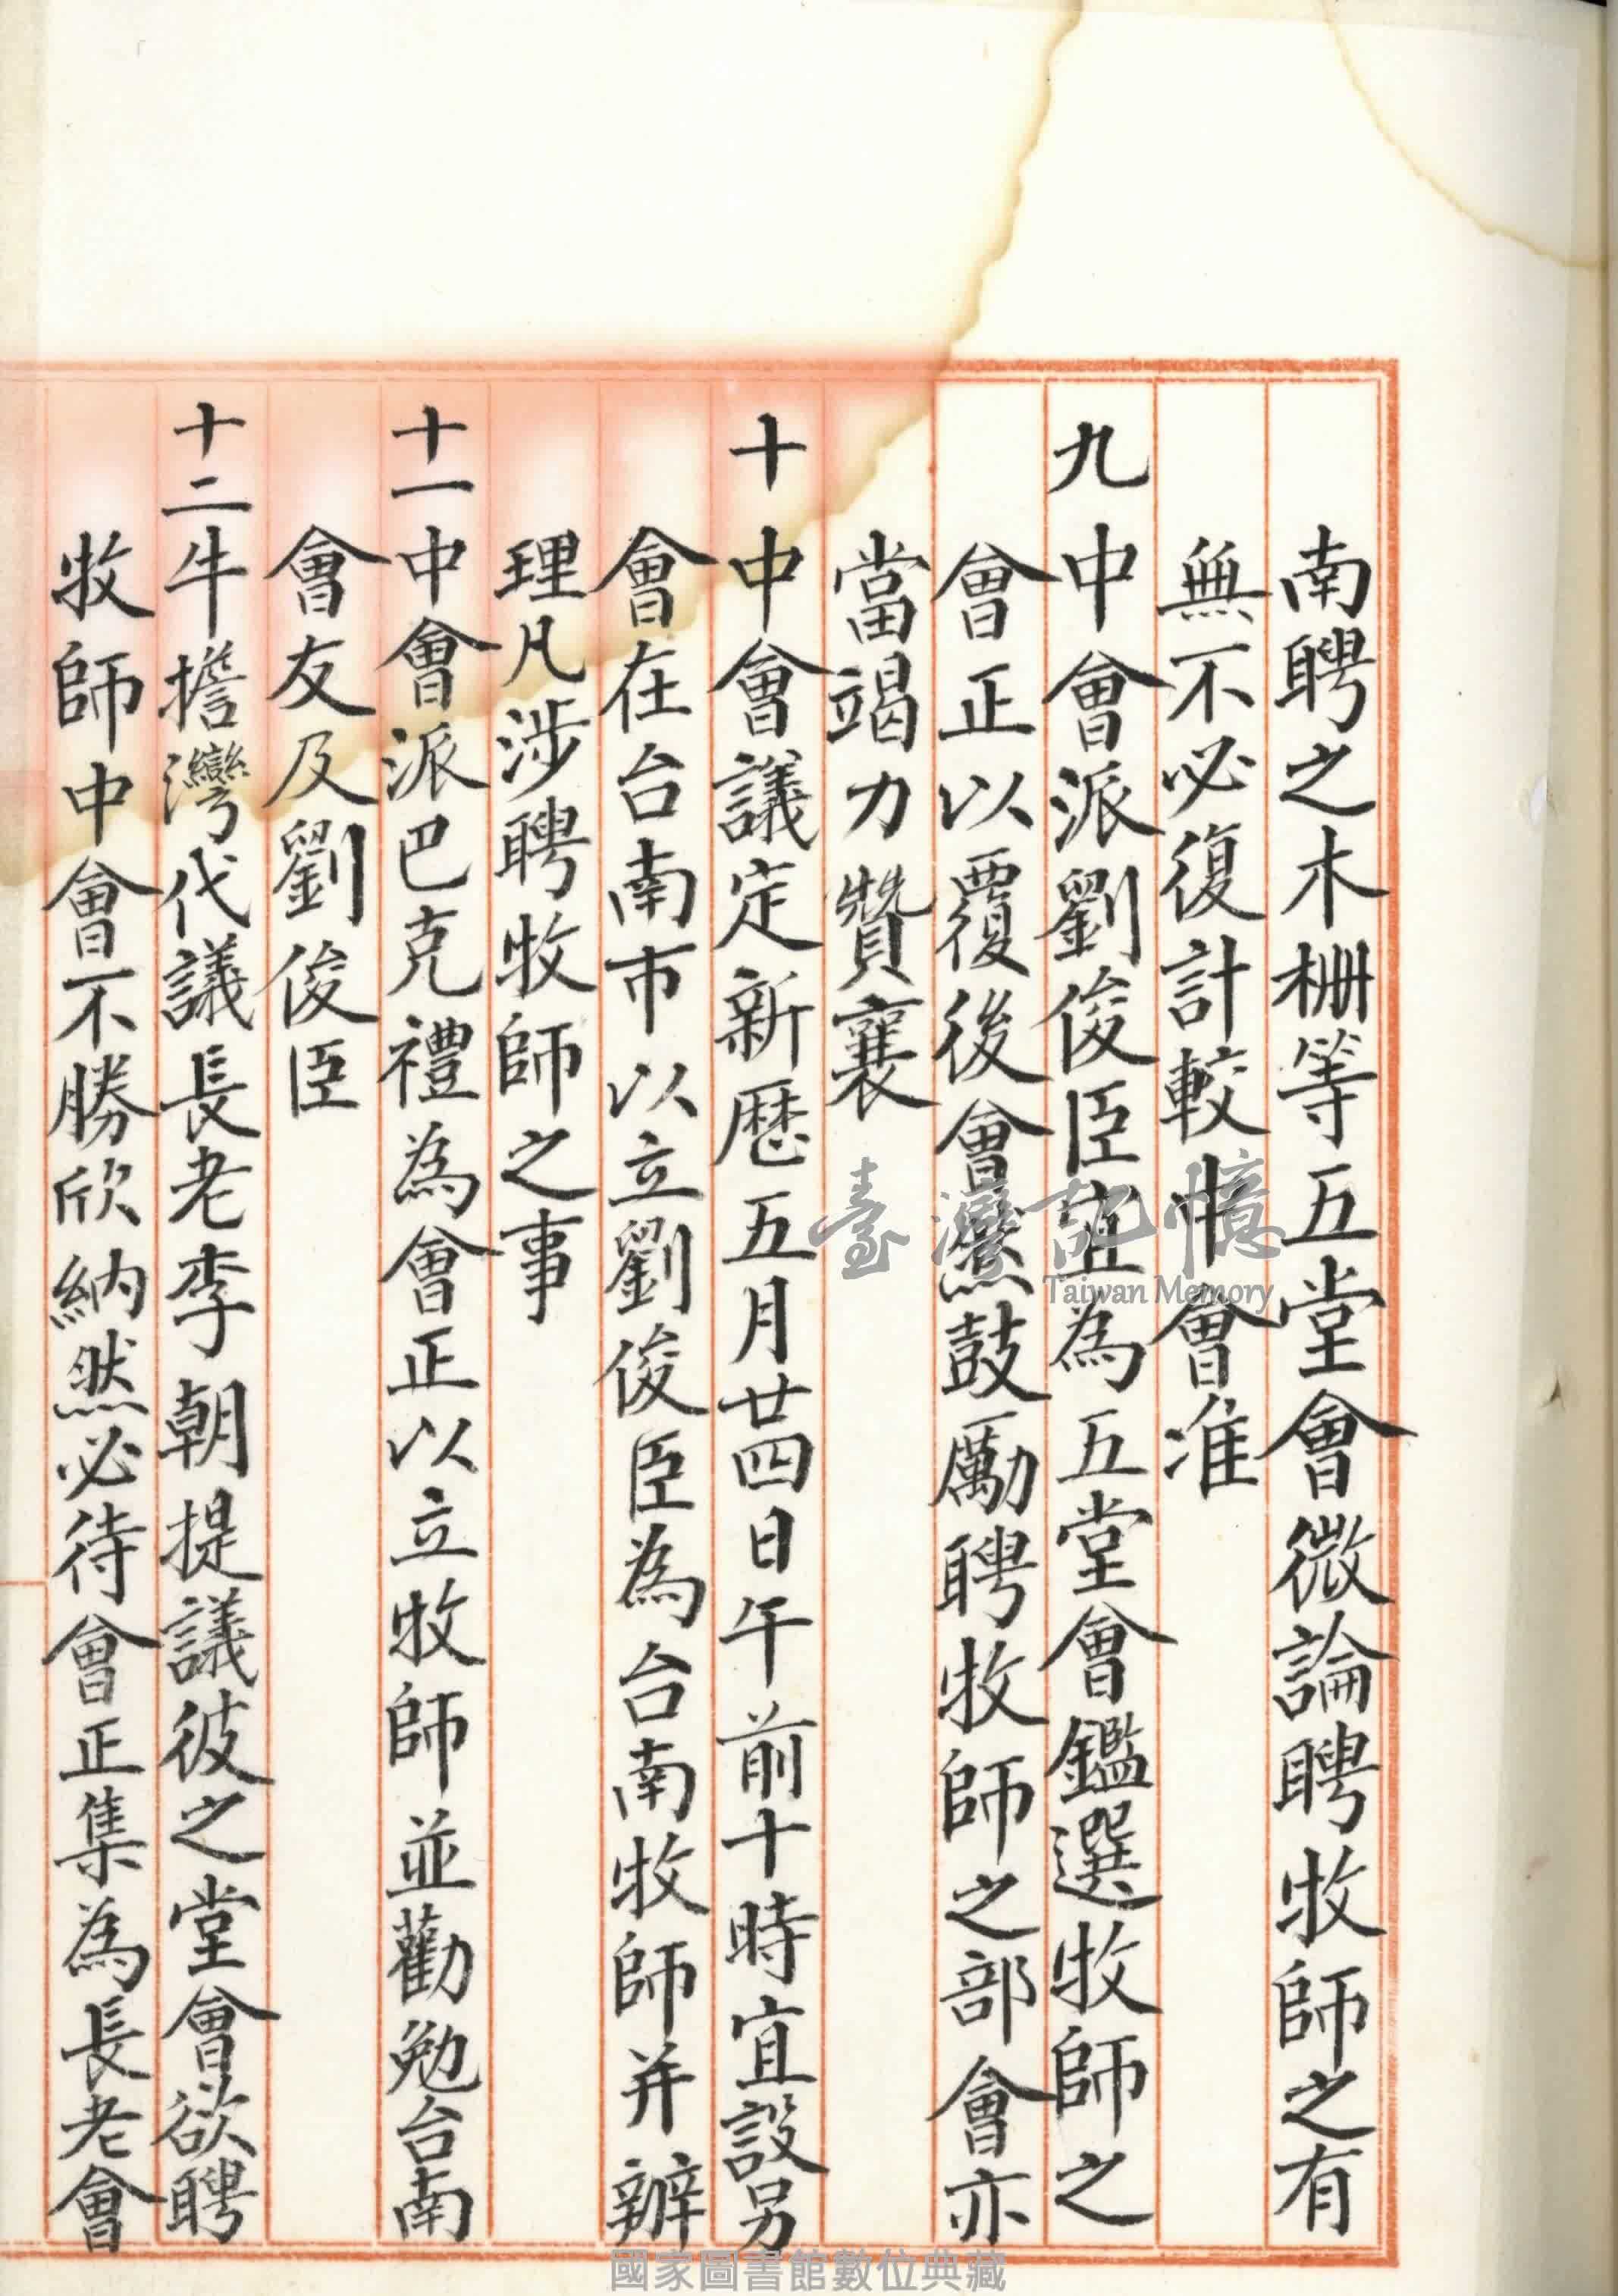 南聘之木柵等五堂會微論聘牧師之有
無不必復計較中會准
九中會派劉俊臣宜為五堂會鑑選牧師之
會正以覆後會點鼓勵聘牧師之部會亦
當竭力贊襄
十中會議定新歷五月廿四日午前十時宜設另
會在台南市以立劉俊臣為台南牧師并辦
理凡涉聘牧師之事
十一中會派巴克禮為會正以立牧師並勸勉台南
會友及劉俊臣
十二牛擔灣代議長老李朝提議彼之堂會欲聘
牧師中會不勝欣納然必待會正集為長老會
臺灣記憶
Taiwan Memory
國家圖書館數位典藏